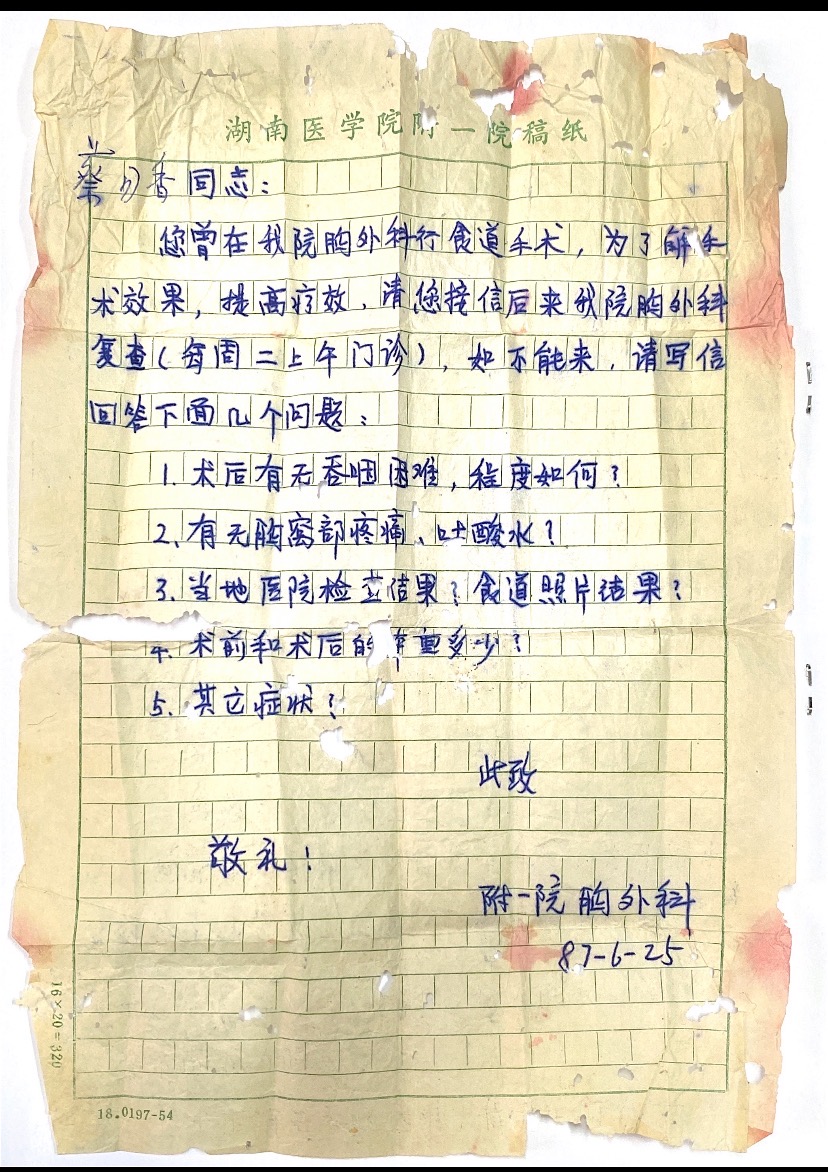 湖南医学院附一院稿纸
蔡 香同志：
您曾在我院胸外科行食道手术，为了解手
术效果，提高疗效，请您接信后来我院胸外科
复查（每周二上午门诊），如不能来，请写信
回答下面几个问题：
1. 术后有无吞咽困难，程度如何？
2. 有无胸窝部疼痛、吐酸水？
3. 当地医院检查结果？食道照片结果？
4. 术前和术后的体重多少？
5. 其它症状？
此致
敬礼！
附一院胸外科
87-6-25
16×20=320
18.0197-54